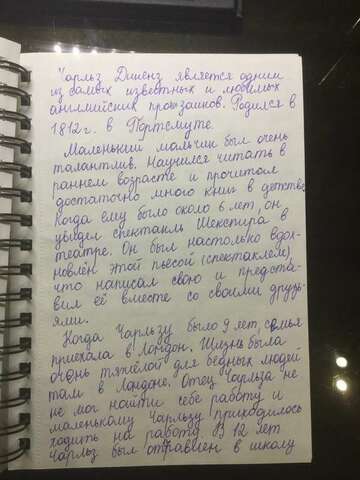 Чарльз Дикенз является одним
из самых известных и любимых
английских прозаиков. Родился в
1812 г. в Портсмуте.
Маленький мальчик был очень
талантлив. Научился читать в
раннем возрасте и прочитал
достаточно много книг в детстве
Когда ему было около 6 лет, он
увидел спектакль Шекспира в
театре. Он был настолько вдох-
новлён этой пьесой (спектаклем),
что написал свою и предста-
вил её вместе со своими друзь-
ями.
Когда Чарльзу было 9 лет, семья
приехала в Лондон. Жизнь была
очень тяжёлой для бедных людей
там в Лондоне. Отец Чарльза не
мог найти себе работу и
маленькому Чарльзу приходилось
ходить на работу. В 12 лет
Чарльз был отправлен в школу